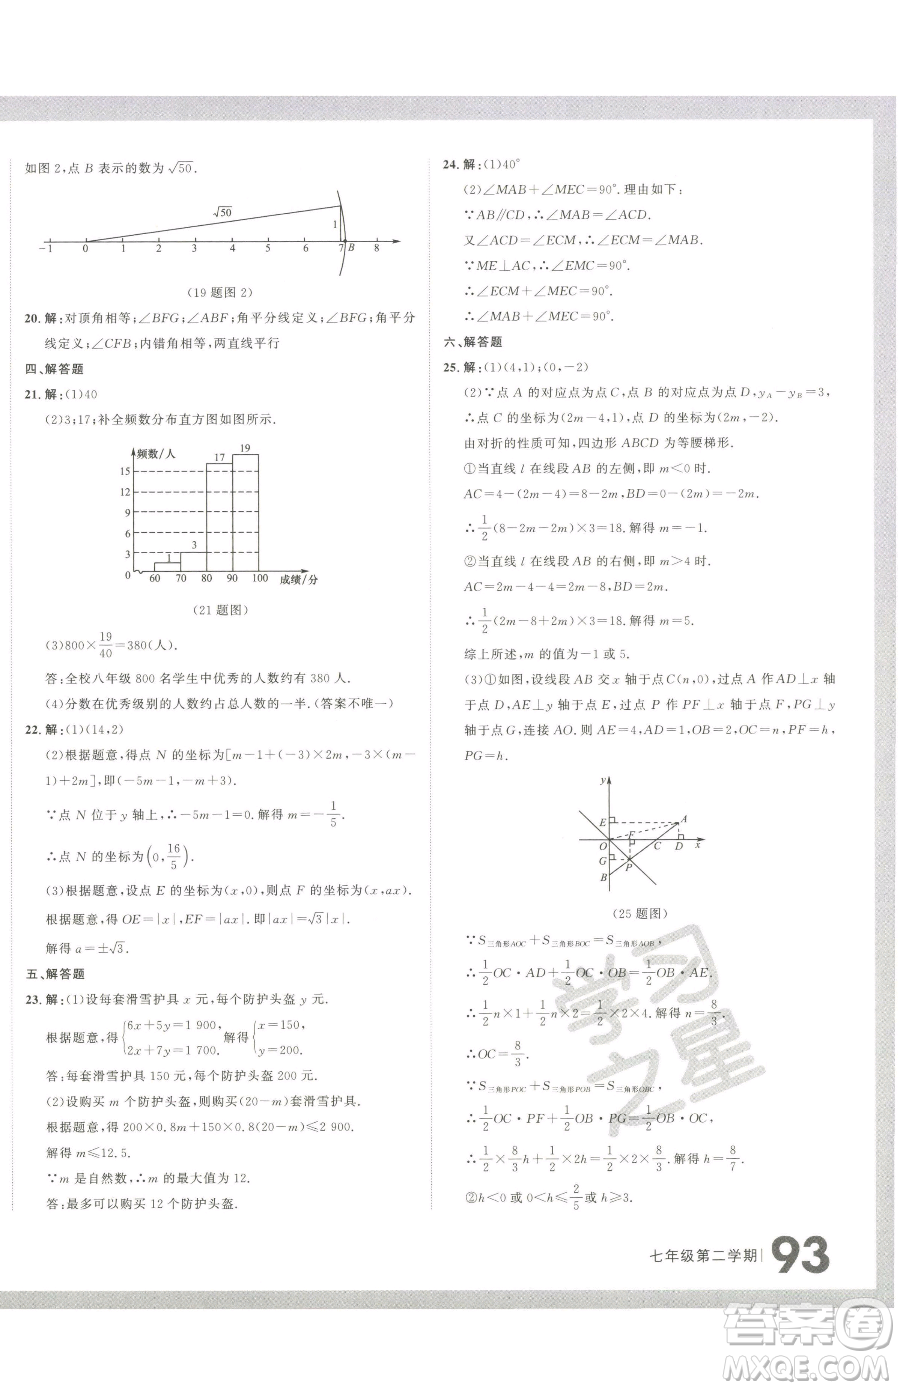 如图 2,点 B 表示的数为√50.
√50
1
-1 0 1 2 3 4 5 6 7 B 8
(19 题图 2)
20. 解:对顶角相等;∠BFG;∠ABF;角平分线定义;∠BFG;角平分
线定义;∠CFB;内错角相等,两直线平行
四、解答题
21. 解:(1)40
(2)3;17;补全频数分布直方图如图所示.
频数/人
17 19
15
12
9
6
3
1 3
0 60 70 80 90 100 成绩/分
(21 题图)
(3)800×19/40=380(人).
答:全校八年级 800 名学生中优秀的人数约有 380 人.
(4)分数在优秀级别的人数约占总人数的一半.(答案不唯一)
22. 解:(1)(14,2)
(2)根据题意,得点 N 的坐标为[m-1+(-3)×2m,-3(m-
1)+2m],即(-5m-1,-m+3).
∵点 N 位于 y 轴上,∴-5m-1=0.解得 m=-1/5.
∴点 N 的坐标为(0,16/5).
(3)根据题意,设点 E 的坐标为(x,0),则点 F 的坐标为(x,ax).
根据题意,得 OE=|x|,EF=|ax|.即|ax|=√3|x|.
解得 a=±√3.
五、解答题
23. 解:(1)设每套滑雪护具 x 元,每个防护头盔 y 元.
根据题意,得{6x+5y=1 900, 2x+7y=1 700. 解得{x=150, y=200.
答:每套滑雪护具 150 元,每个防护头盔 200 元.
(2)设购买 m 个防护头盔,则购买(20-m)套滑雪护具.
根据题意,得 200×0.8m+150(20-m)≤2 900.
解得 m≤12.5.
∵m 是自然数,∴m 的最大值为 12.
答:最多可以购买 12 个防护头盔.
24. 解:(1)40°
(2)∠MAB+∠MEC=90°.理由如下:
∵AB∥CD,∴∠MAB=∠ACD.
又∠ACD=∠ECM,∴∠ECM=∠MAB.
∵ME⊥AC,∴∠EMC=90°.
∴∠ECM+∠MEC=90°.
∴∠MAB+∠MEC=90°.
六、解答题
25. 解:(1)(4,1);(0,-2)
(2)∵点 A 的对应点为点 C,点 B 的对应点为点 D,yA-yB=3,
∴点 C 的坐标为(2m-4,1),点 D 的坐标为(2m,-2).
由对折的性质可知,四边形 ABCD 为等腰梯形.
①当直线 l 在线段 AB 的左侧,即 m<0 时.
AC=4-(2m-4)=8-2m,BD=0-2m=-2m.
∴1/2(8-2m-2m)×3=18.解得 m=-1.
②当直线 l 在线段 AB 的右侧,即 m>4 时.
AC=2m-4-4=2m-8,BD=2m.
∴1/2(2m-8+2m)×3=18.解得 m=5.
综上所述,m 的值为-1 或 5.
(3)①如图,设线段 AB 交 x 轴于点 C(n,0),过点 A 作 AD⊥x 轴于
点 D,AE⊥y 轴于点 E,过点 P 作 PF⊥x 轴于点 F,PG⊥y
轴于点 G,连接 AO.则 AE=4,AD=1,OB=2,OC=n,PF=h,
PG=h.
y
E A
O F C D x
G P
B
(25 题图)
∵S三角形AOC+S三角形BOC=S三角形AOB,
∴1/2OC·AD+1/2OC·OB=1/2OB·AE.
∴1/2n×1+1/2n×2=1/2×2×4.解得 n=8/3.
∴OC=8/3.
∵S三角形POC+S三角形POB=S三角形OBC,
∴1/2OC·PF+1/2OB·PG=1/2OC·OB.
∴1/2×8/3h+1/2×2h=1/2×8/3×2.解得 h=8/7.
②h<0 或 0<h≤2/5或 h≥3.
学习之星
七年级第二学期 93
答案圈
MXQE.COM